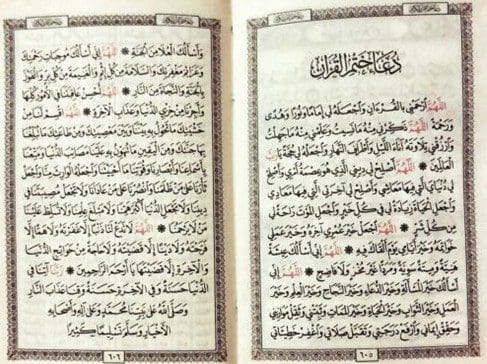 دُعَاءُ خَتْمِ القُرْآنِ
اللَّهُمَّ ارْحَمْنِي بِالقُرْءَانِ وَاجْعَلْهُ لِي إِمَامًا وَنُورًا وَهُدًى
وَرَحْمَةً اللَّهُمَّ ذَكِّرْنِي مِنْهُ مَا نَسِيتُ وَعَلِّمْنِي مِنْهُ مَا جَهِلْتُ
وَارْزُقْنِي تِلَاوَتَهُ آنَاءَ اللَّيْلِ وَأَطْرَافَ النَّهَارِ وَاجْعَلْهُ لِي حُجَّةً يَارَبَّ
العَالَمِينَ * اللَّهُمَّ أَصْلِحْ لِي دِينِي الَّذِي هُوَ عِصْمَةُ أَمْرِي وَأَصْلِحْ
لِي دُنْيَايَ الَّتِي فِيهَا مَعَاشِي وَأَصْلِحْ لِي آخِرَتِي الَّتِي فِيهَا مَعَادِي
وَاجْعَلِ الحَيَاةَ زِيَادَةً لِي فِي كُلِّ خَيْرٍ وَاجْعَلِ المَوْتَ رَاحَةً لِي
مِنْ كُلِّ شَرٍّ * اللَّهُمَّ اجْعَلْ خَيْرَ عُمْرِي آخِرَهُ وَخَيْرَ عَمَلِي
خَوَاتِمَهُ وَخَيْرَ أَيَّامِي يَوْمَ أَلْقَاكَ فِيهِ * اللَّهُمَّ إِنِّي أَسْأَلُكَ عِيشَةً
هَنِيَّةً وَمِيتَةً سَوِيَّةً وَمَرَدًّا غَيْرَ مُخْزٍ وَلَا فَاضِحٍ * اللَّهُمَّ إِنِّي
أَسْأَلُكَ خَيْرَ المَسْأَلَةِ وَخَيْرَ الدُّعَاءِ وَخَيْرَ النَّجَاحِ وَخَيْرَ العِلْمِ وَخَيْرَ
العَمَلِ وَخَيْرَ الثَّوَابِ وَخَيْرَ الحَيَاةِ وَخَيْرَ المَمَاتِ وَثَبِّتْنِي وَثَقِّلْ مَوَازِينِي
وَحَقِّقْ إِيمَانِي وَارْفَعْ دَرَجَتِي وَتَقَبَّلْ صَلَاتِي وَاغْفِرْ خَطِيئَاتِي
٦٠٥
وَأَسْأَلُكَ العُلَا مِنَ الجَنَّةِ * اللَّهُمَّ إِنِّي أَسْأَلُكَ مُوجِبَاتِ رَحْمَتِكَ
وَعَزَائِمَ مَغْفِرَتِكَ وَالسَّلَامَةَ مِنْ كُلِّ إِثْمٍ وَالغَنِيمَةَ مِنْ كُلِّ بِرٍّ وَالفَوْزَ
بِالجَنَّةِ وَالنَّجَاةَ مِنَ النَّارِ * اللَّهُمَّ أَحْسِنْ عَاقِبَتَنَا فِي الأُمُورِ كُلِّهَا
وَأَجِرْنَا مِنْ خِزْيِ الدُّنْيَا وَعَذَابِ الآخِرَةِ * اللَّهُمَّ اقْسِمْ لَنَا مِنْ
خَشْيَتِكَ مَا تَحُولُ بِهِ بَيْنَنَا وَبَيْنَ مَعْصِيَتِكَ وَمِنْ طَاعَتِكَ مَا تُبَلِّغُنَا
بِهَا جَنَّتَكَ وَمِنَ اليَقِينِ مَا تُهَوِّنُ بِهِ عَلَيْنَا مَصَائِبَ الدُّنْيَا وَمَتِّعْنَا
بِأَسْمَاعِنَا وَأَبْصَارِنَا وَقُوَّتِنَا مَا أَحْيَيْتَنَا وَاجْعَلْهُ الوَارِثَ مِنَّا وَاجْعَلْ
ثَأْرَنَا عَلَى مَنْ ظَلَمَنَا وَانْصُرْنَا عَلَى مَنْ عَادَانَا وَلَا تَجْعَلْ مُصِيبَتَنَا فِي
دِينِنَا وَلَا تَجْعَلِ الدُّنْيَا أَكْبَرَ هَمِّنَا وَلَا مَبْلَغَ عِلْمِنَا وَلَا تُسَلِّطْ عَلَيْنَا
مَنْ لَا يَرْحَمُنَا * اللَّهُمَّ لَا تَدَعْ لَنَا ذَنْبًا إِلَّا غَفَرْتَهُ وَلَا هَمًّا إِلَّا
فَرَّجْتَهُ وَلَا دَيْنًا إِلَّا قَضَيْتَهُ وَلَا حَاجَةً مِنْ حَوَائِجِ الدُّنْيَا
وَالآخِرَةِ إِلَّا قَضَيْتَهَا يَا أَرْحَمَ الرَّاحِمِينَ * رَبَّنَا آتِنَا فِي
الدُّنْيَا حَسَنَةً وَفِي الآخِرَةِ حَسَنَةً وَقِنَا عَذَابَ النَّارِ
وَصَلَّى اللهُ عَلَى نَبِيِّنَا مُحَمَّدٍ وَعَلَى آلِهِ وَأَصْحَابِهِ
الأَخْيَارِ وَسَلَّمَ تَسْلِيمًا كَثِيرًا
٦٠٦